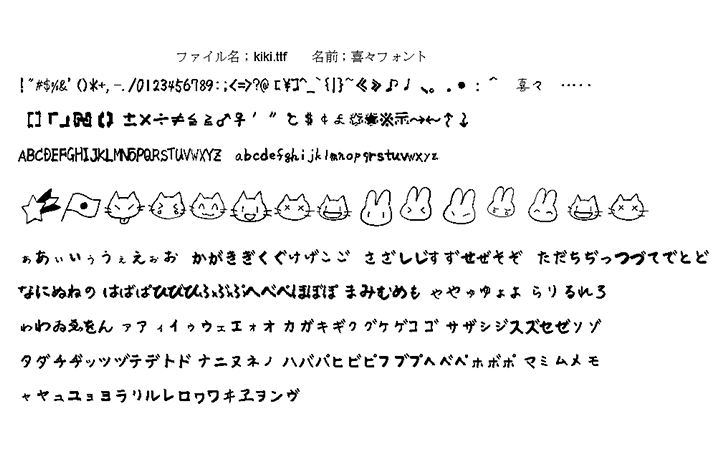 ファイル名；kiki.ttf　名前；喜々フォント
!"#$%&'()*+,-./0123456789:;<=>?@[¥]^_`{|}~≪≫♪♩、。.●：＾　喜々　……
[]「」【】±×÷≠≦≧♂♀′″℃$¢£※示→←↑↓
ABCDEFGHIJKLMNOPQRSTUVWXYZ abcdefghijklmnopqrstuvwxyz
ぁあぃいぅうぇえぉお かがきぎくぐけげこご さざしじすずせぜそぞ ただちぢっつづてでとど
なにぬねの はばぱひびぴふぶぷへべぺほぼぽ まみむめも ゃやゅゆょよ らりるれろ
ゎわゐゑをん ァアィイゥウェエォオ カガキギクグケゲコゴ サザシジスズセゼソゾ
タダチヂッツヅテデトド ナニヌネノ ハバパヒビピフブプヘベペホボポ マミムメモ
ャヤュユョヨラリルレロヮワヰヱヲンヴ